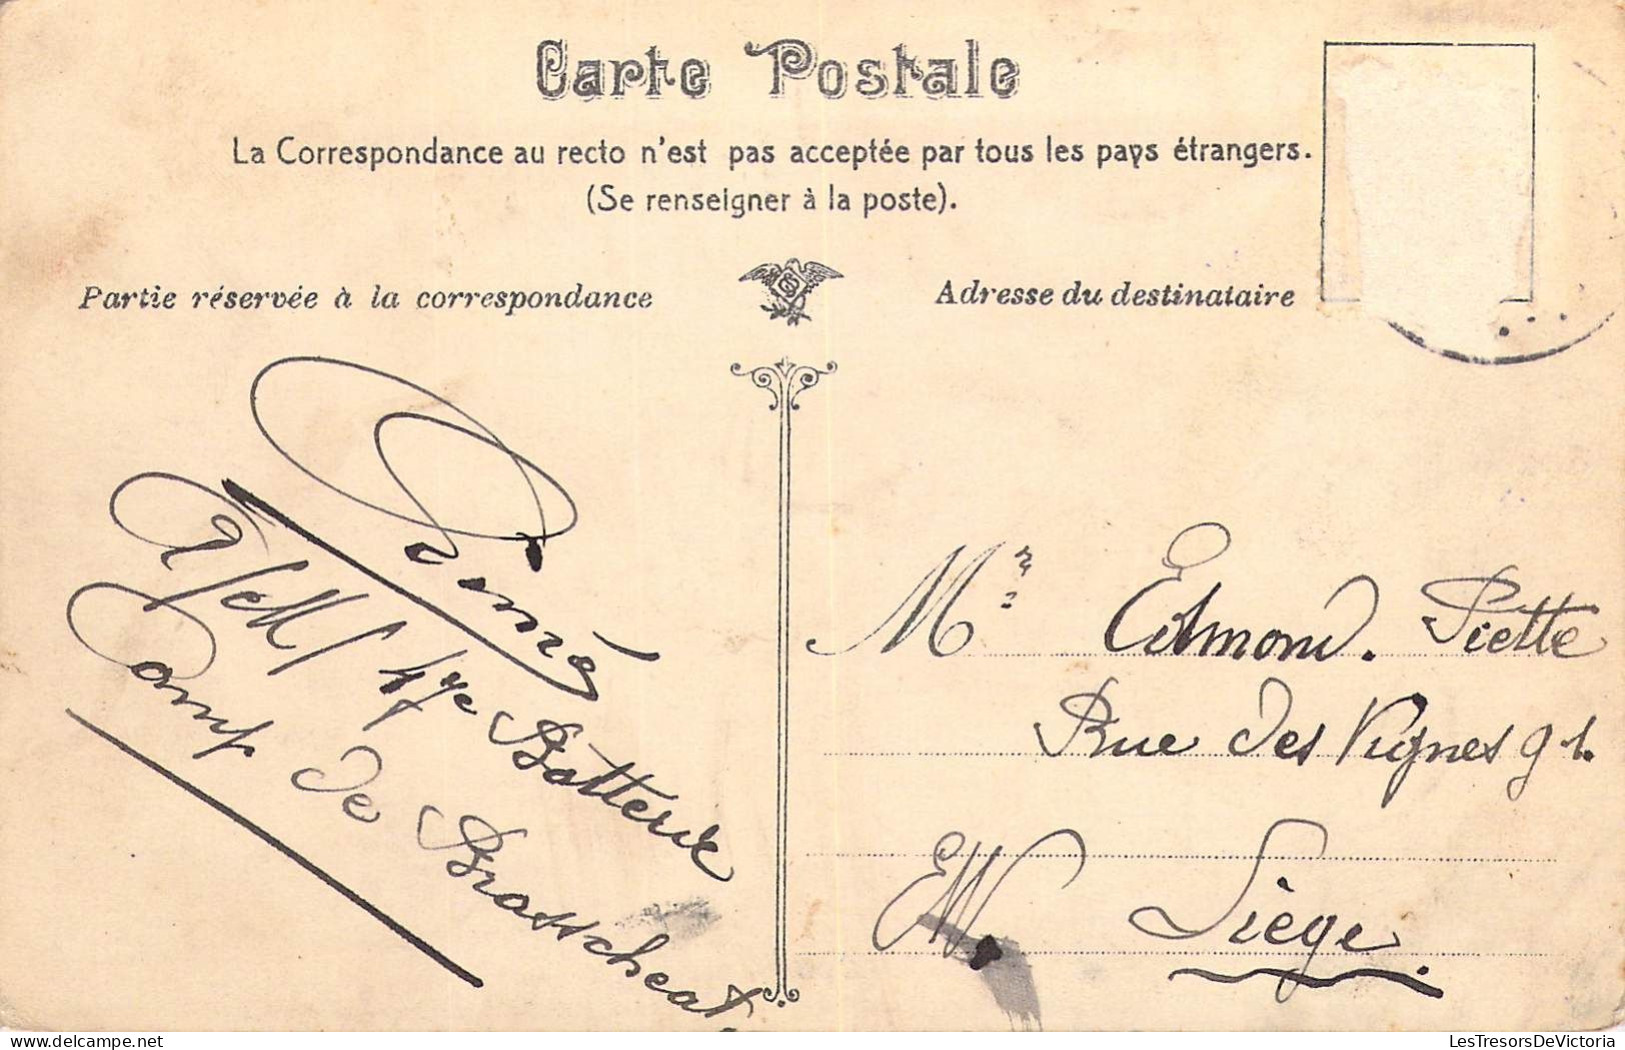 Carte Postale
La Correspondance au recto n'est pas acceptée par tous les pays étrangers.
(Se renseigner à la poste).
Partie réservée à la correspondance
Adresse du destinataire
47e Batterie
Camp de Brasscheat.
Mr Edmond. Piette
Rue des Vignes 91.
E/V. Liège.
LesTresorsDeVictoria.com